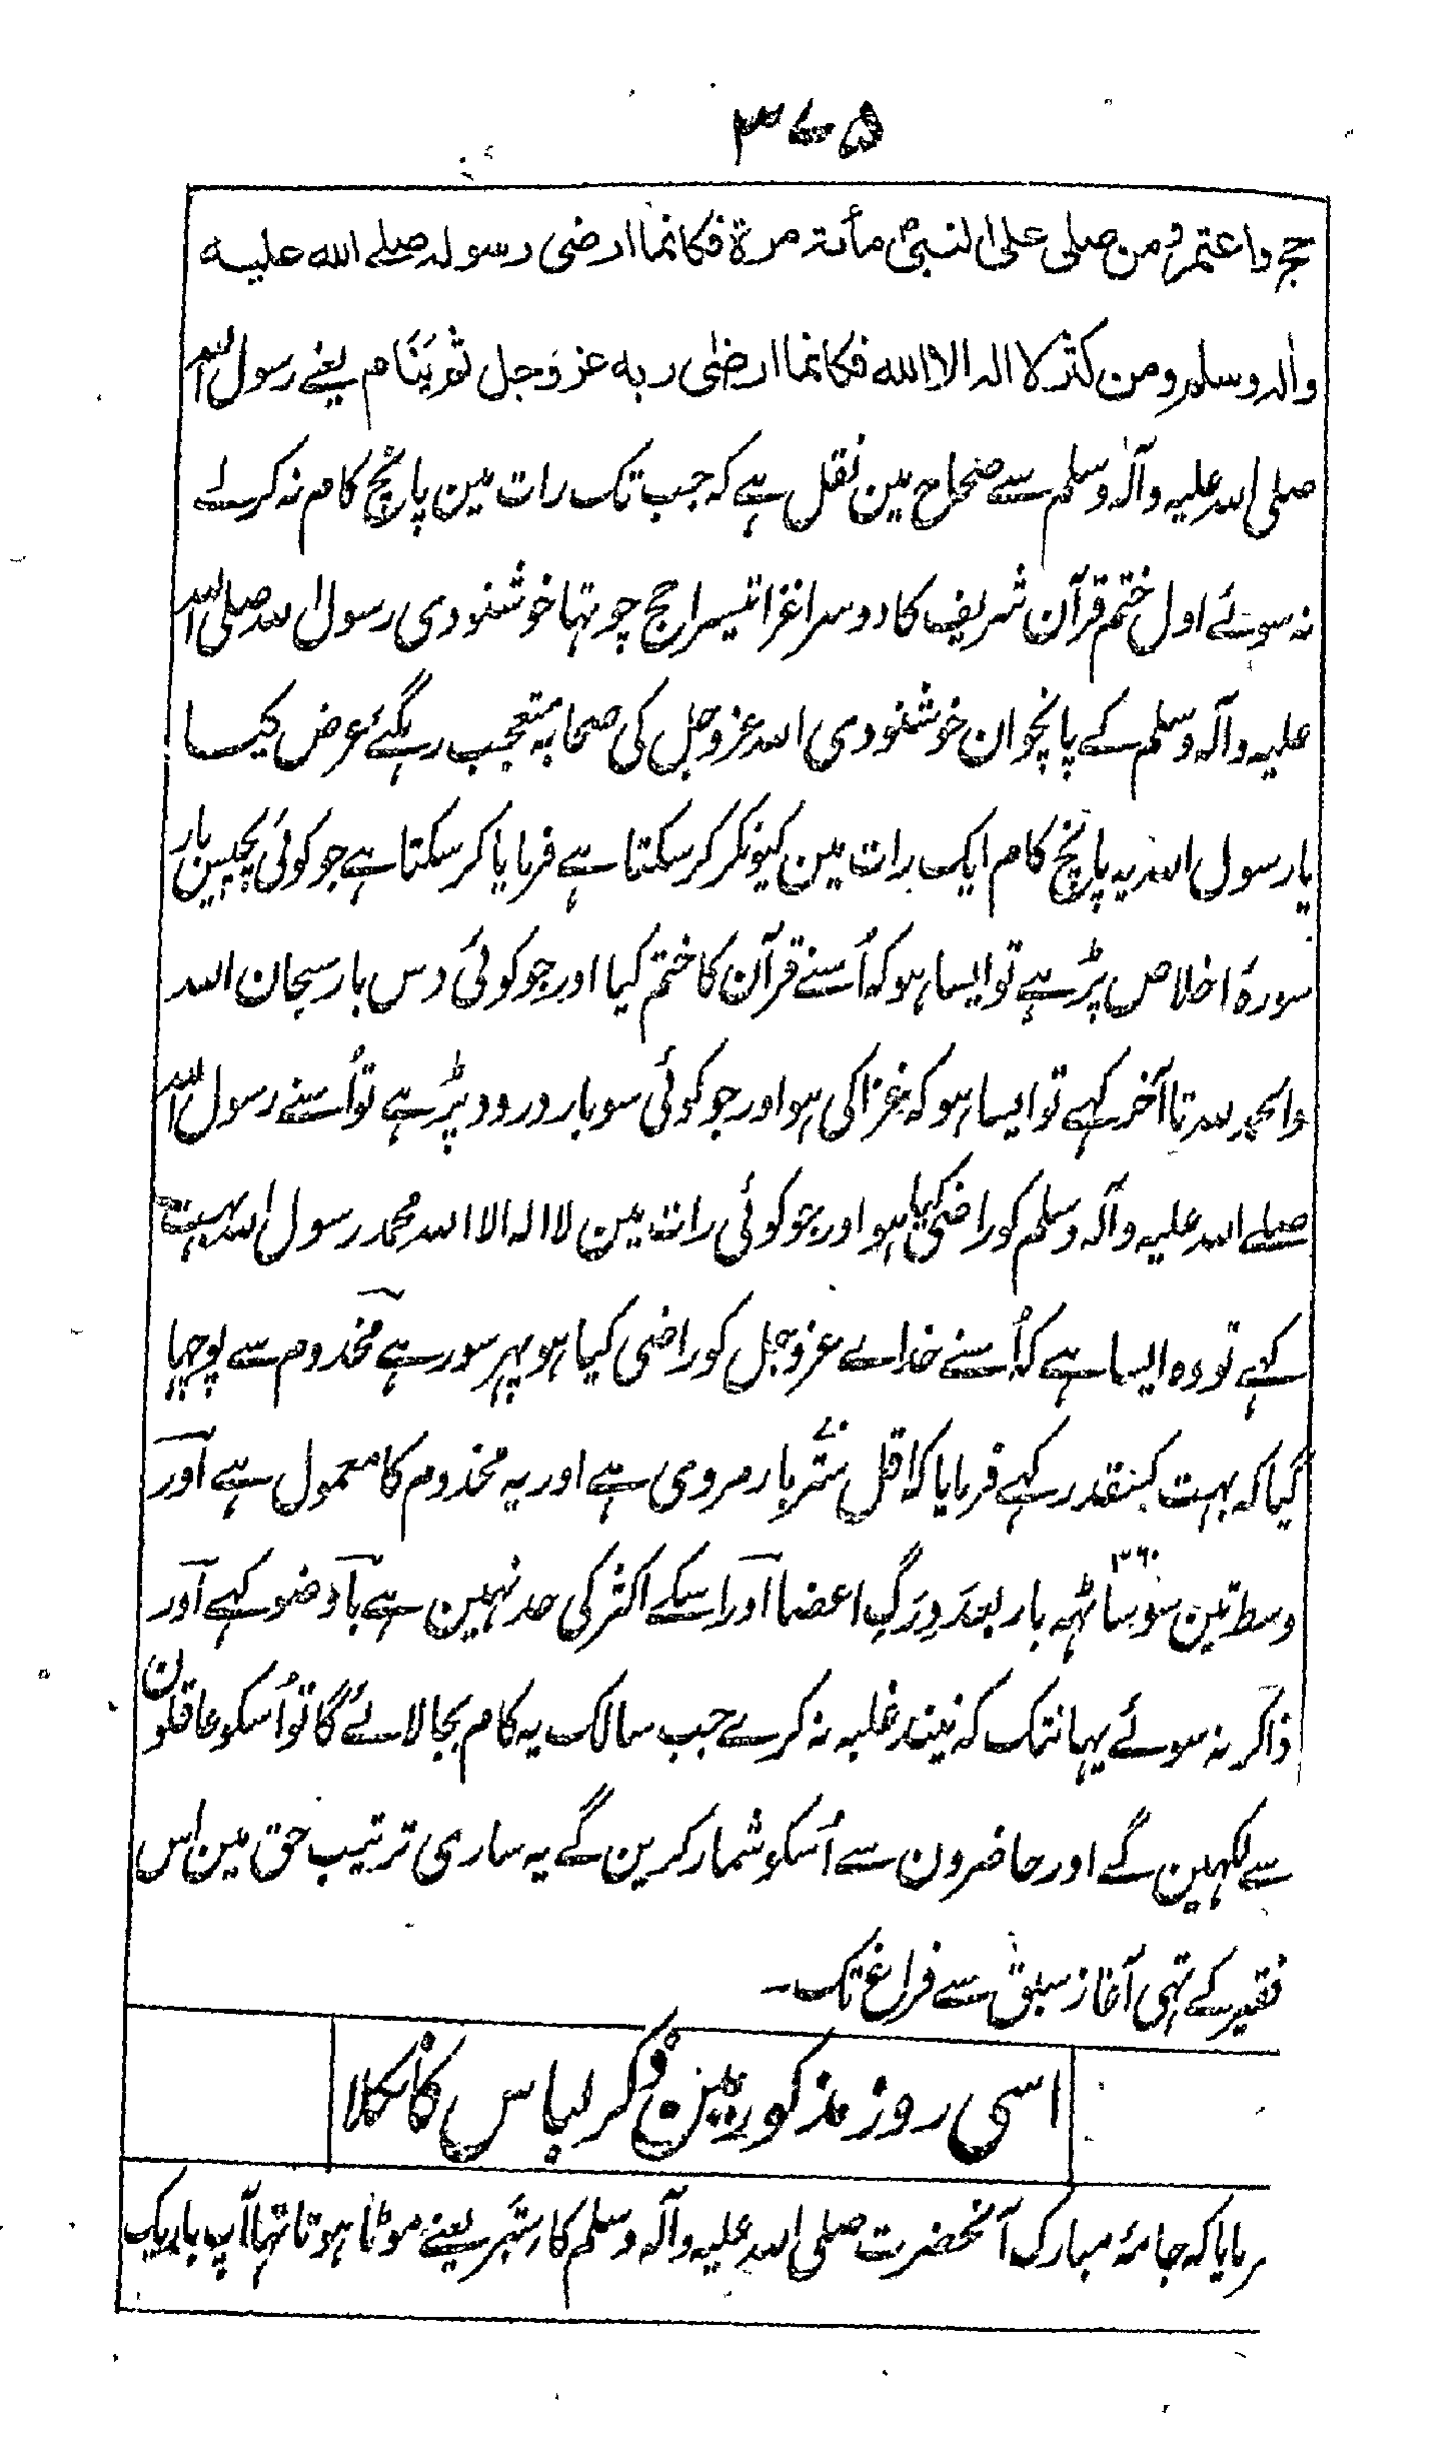 ۳۷۵
حج واعتمر ومن صلى على النبي مأته مرة فكانما ارضى رسوله صلے الله عليه
واله وسلم ومن كثر لا اله الا الله فكانما ارضى ربه عز وجل ثم ينام یعنے رسول الله
صلی اللہ علیہ وآلہ وسلم سے صحاح مین نقل ہے کہ جب تک رات مین پانچ کام نہ کرلے
نہ سوئے اول ختم قرآن شریف کا دوسرا غزا تیسرا حج چوتہا خوشنودی رسول اللہ صلی اللہ
علیہ وآلہ وسلم کے پانچوان خوشنودی اللہ عزوجل کی صحابہ متعجب رہگئے عرض کیا
یا رسول اللہ یہ پانچ کام ایک رات مین کیونکر کرسکتا ہے فرمایا کرسکتا ہے جو کوئی پچیس بار
سورۂ اخلاص پڑہے تو ایسا ہو کہ اُسنے قرآن کا ختم کیا اور جو کوئی دس بار سبحان اللہ
والحمد للہ تا آخر کہے تو ایسا ہو کہ غزا کی ہو اور جو کوئی سو بار درود پڑہے تو اُسنے رسول اللہ
صلے اللہ علیہ وآلہ وسلم کو راضی کیا ہو اور جو کوئی رات مین لا الہ الا اللہ محمد رسول اللہ بہت
کہے تو وہ ایسا ہے کہ اُسنے خدا لے عزوجل کو راضی کیا ہو پہر سو رہے مخدوم سے پوچہا
گیا کہ بہت کسقدر کہے فرمایا کہ اقل ستّر بار مروی ہے اور یہ مخدوم کا معمول ہے اور
وسط تین سو ساٹہہ ۳۶۰ بار بعدَدِ رَگِ اعضا اور اسکے اکثر کی حد نہین ہے با وضو کہے اور
ذاکر نہ سوئے یہانتک کہ نیند غلبہ نہ کرے جب سالک یہ کام بجا لائے گا تو اُسکو عاقلون
سے لکہین گے اور حاضرون سے اُسکو شمار کرین گے یہ ساری ترتیب حق مین اس
فقیر کے تہی آغاز سبق سے فراغ تک۔
اسی روز مذکور مین ذکر لباس کا نکلا
رمایا کہ جامۂ مبارک آنحضرت صلی اللہ علیہ وآلہ وسلم کا ستبر یعنے موٹا ہوتا تہا آپ باریک